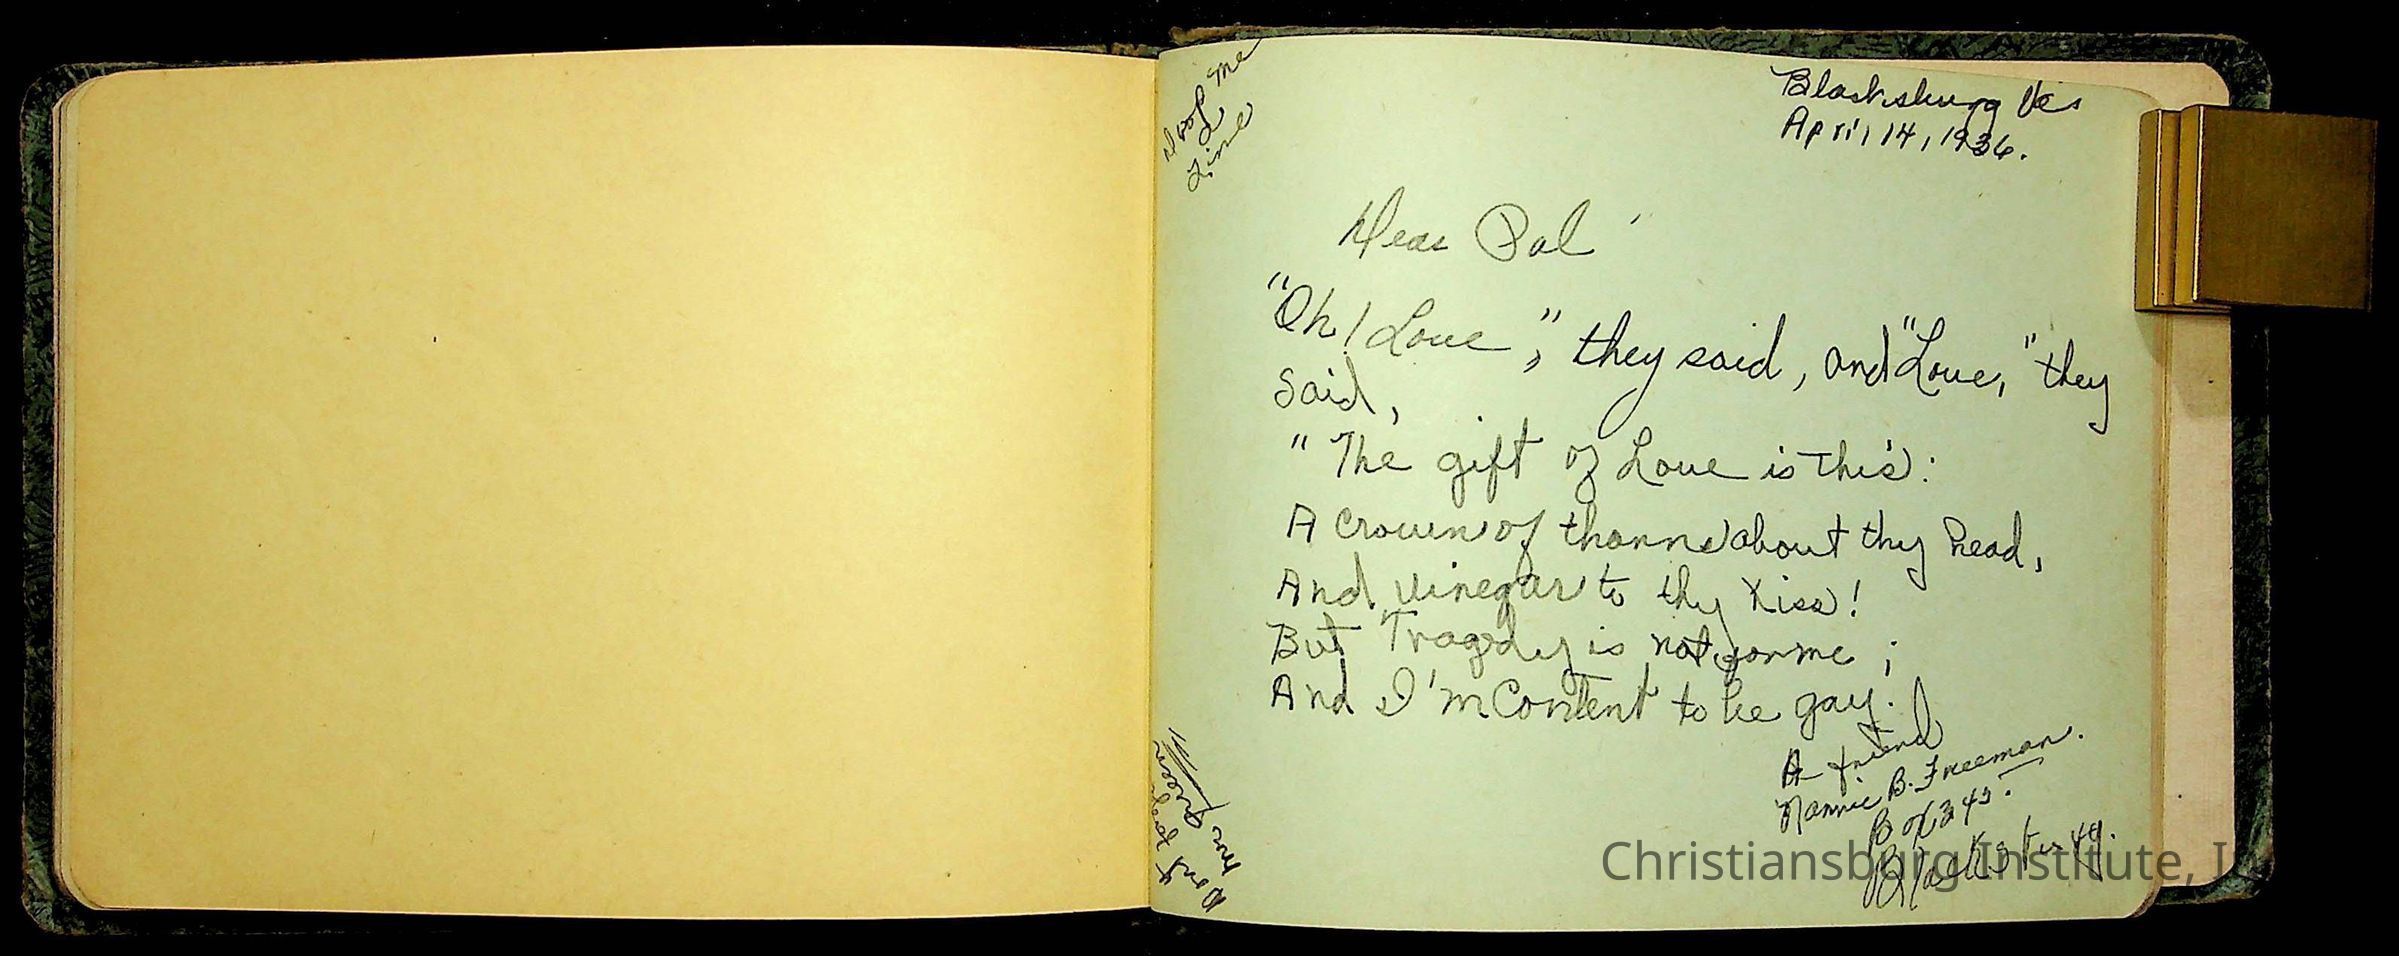 Drop me
a
line
Blacksburg Va
April 14, 1936.
Dear Pal
"Oh! Love", they said, and "Love," they
said,
"The gift of Love is this:
A Crown of thorns about thy head,
And vinegar to thy kiss!
But Tragedy is not for me;
And I'm Content to be gay.
A friend
Nannie B. Freeman.
Box 343.
Dont
Christiansburg Institute, I